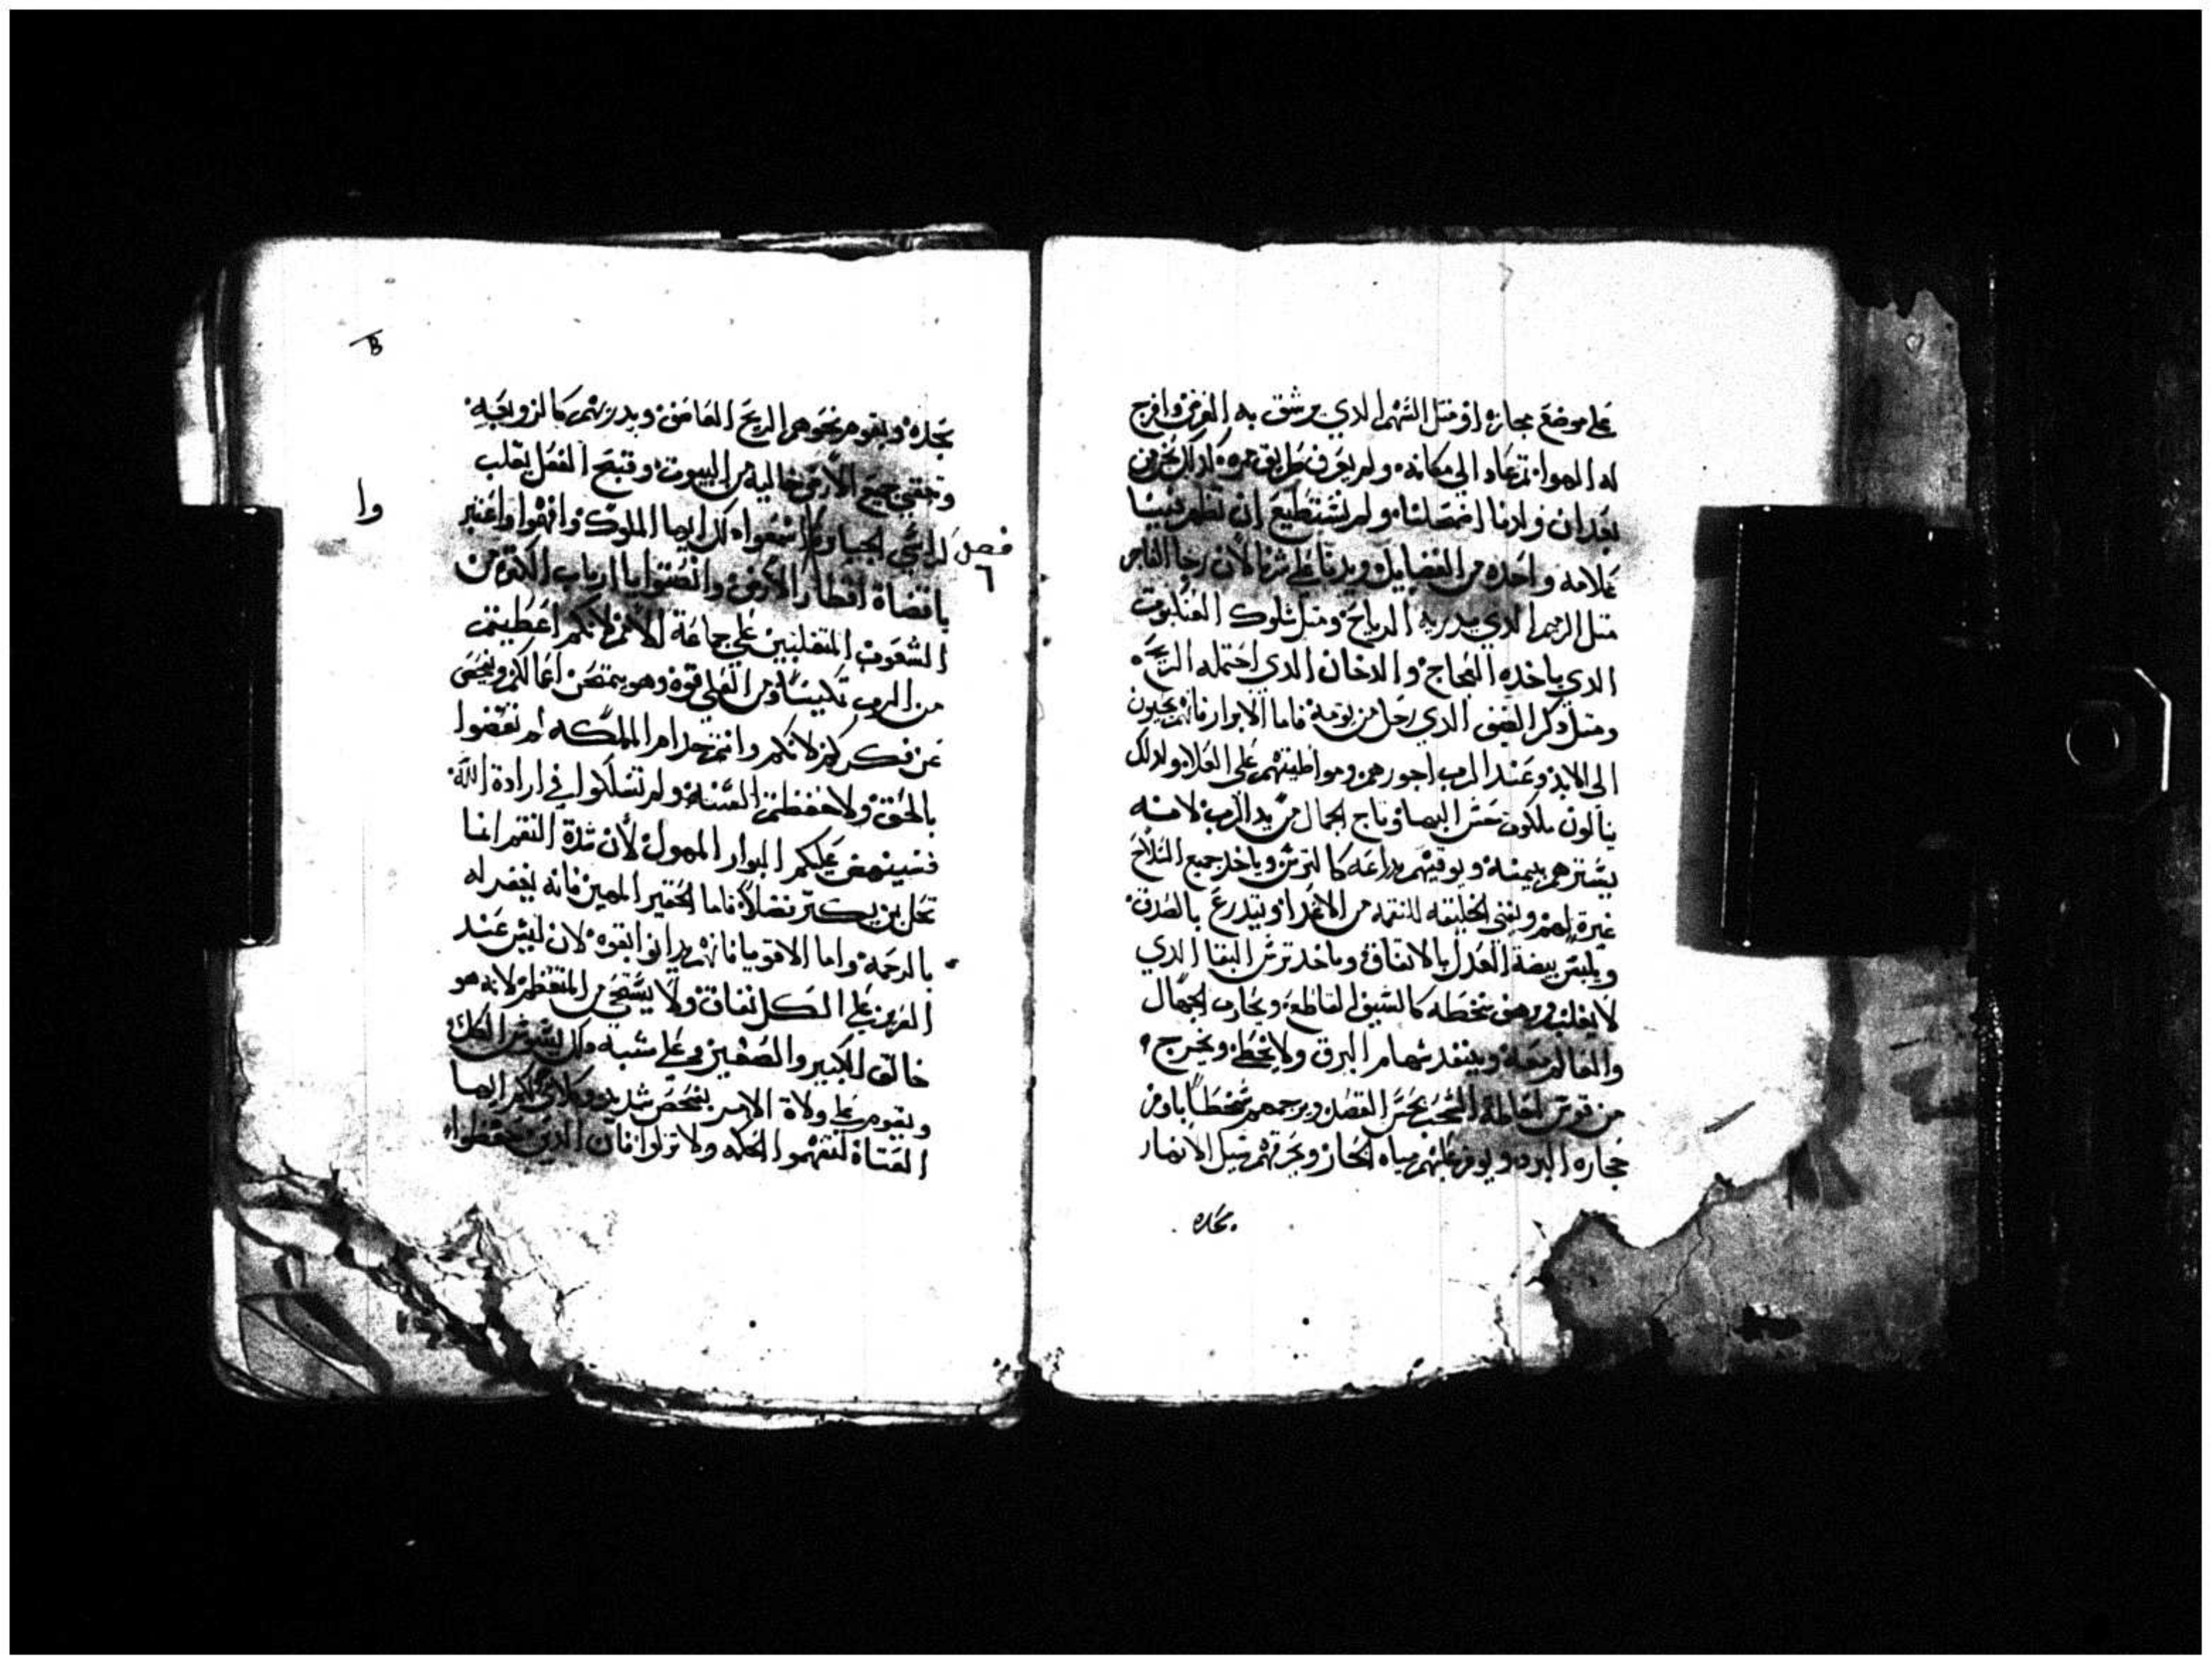 علي موضع مجازه او مثل السهم الدي يرشق به الغرض وافرج
له الهوا ثم عاد الي مكانه ولم يعرف طريق مره كدلك نحن من
بعد ان ولدنا اضمحلنا ولم نستطيع ان نظهر فينا
علامه واحده من الفضايل وبدنا علي شرنا لان رجا الفاجر
متل الزجر الدي يدريه الرياح ومتل شلوك العنكبوت
الدي ياخده العجاج والدخان الدي احتمله الريح
ومتل دكر الضيف الدي رحل من يومه فاما الابرار فانهم يحيون
الي الابد وعند الرب اجورهم ومواطينهم علي العلا ولدلك
ينالون ملكوت حسن البها وتاج الجمال من يد الرب لانه
يسترهم بيمينه ويوقيهم بدراعه كالترس وياخد جميع السلاح
غيرة لهم ويفني الخليقه للنقمه من الاعدا ويتدرع بالصدق
ويلبس بيضة العدل بالاتفاق وياخد ترس البقا الدي
لا يغلب ويرهف سخطه كالسيف القاطع ويحارب الجهال
والعالم معه وينفد سهام البرق ولا يخطي ويخرج
من قوس احاطة السحب بحسن القصد ويرجمهم سخطا باوفر
حجارة البرد ويوفر عليهم مياه البحار وبحرتهم سيل الانهار
بجده
بجده ويقوم نحوهم الريح العاصف ويدريهم كالزوبعه
وتبقي جميع الارض خاليه من البيوت وقبح الفعل يقلب
كراسي الجبابره اسمعوا دلك ايها الملوك وافهموا واعتبر
فصل ٦
وا
ياقضاة اقطار الارض وانصتوا ياارباب الكثره من
الشعوب المتغلبين علي جماعة الامم لانكم اعطيتم
من الرب تمكينا ومن العلي قوه وهو يمتحن اعمالكم ويفحص
عن فكركم لانكم وانتم خدام المملكه لم تقضوا
بالحق ولا حفظتم السنه ولم تسلكوا في ارادة الله
فسينهض عليكم البوار المهول لان شدة النقم انما
تحل بمن يكتر تفضلا فاما الحقير المهين فانه يغفر له
بالرحمه واما الاقويا فانهم يدانوا بقوه لان ليس عند
العزيز علي الكل نفاق ولا يستحي من المتعظم لانه هو
خالق الكبير والصغير وعلي شبه دلك يسوس الكل
ويقوم علي ولاة الامر بفحص شديد وكلامي لكم ايها
العتاة لتفهموا الحكمه ولا تزلوا فان الدين حفظوا